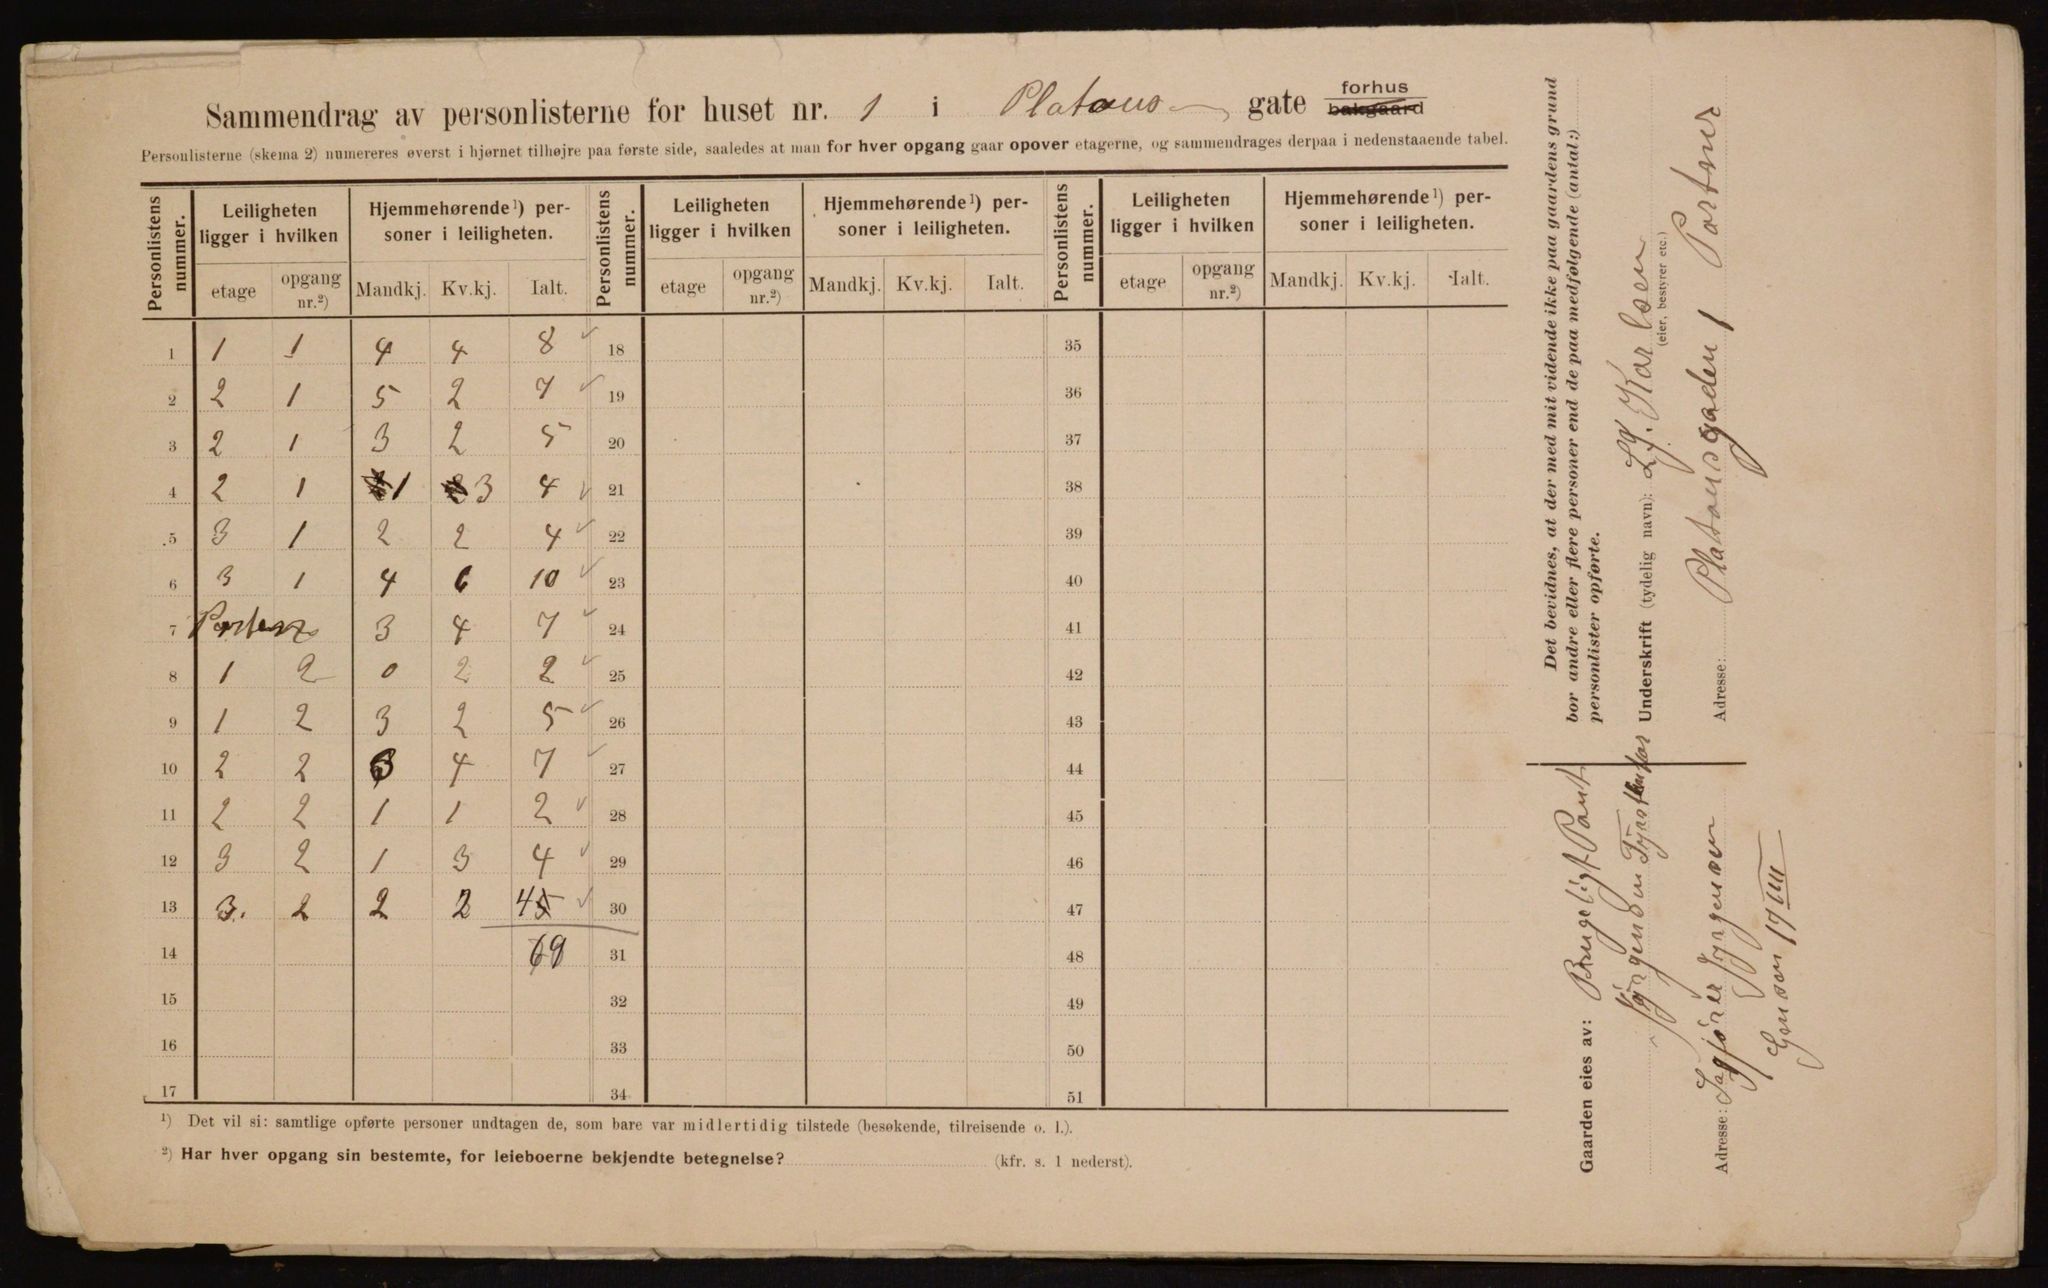 Sammendrag av personlisterne for huset nr. 1 i Platous gate forhus
bakgaard
Personlisterne (skema 2) numereres øverst i hjørnet tilhøjre paa første side, saaledes at man for hver opgang gaar opover etagerne, og sammendrages derpaa i nedenstaaende tabel.
Personlistens nummer. Leiligheten ligger i hvilken Hjemmehørende¹) personer i leiligheten. Personlistens nummer. Leiligheten ligger i hvilken Hjemmehørende¹) personer i leiligheten. Personlistens nummer. Leiligheten ligger i hvilken Hjemmehørende¹) personer i leiligheten.
etage opgang nr.²) Mandkj. Kv.kj. Ialt. etage opgang nr.²) Mandkj. Kv.kj. Ialt. etage opgang nr.²) Mandkj. Kv.kj. Ialt.
1 1 1 4 4 8 18 35
2 2 1 5 2 7 19 36
3 2 1 3 2 5 20 37
4 2 1 1 3 4 21 38
5 3 1 2 2 4 22 39
6 3 1 4 6 10 23 40
7 Portner 3 4 7 24 41
8 1 2 0 2 2 25 42
9 1 2 3 2 5 26 43
10 2 2 3 4 7 27 44
11 2 2 1 1 2 28 45
12 3 2 1 3 4 29 46
13 3. 2 2 2 4 30 47
14 69 31 48
15 32 49
16 33 50
17 34 51
¹) Det vil si: samtlige opførte personer undtagen de, som bare var midlertidig tilstede (besøkende, tilreisende o. l.).
²) Har hver opgang sin bestemte, for leieboerne bekjendte betegnelse? (kfr. s. 1 nederst).
Det bevidnes, at der med mit vidende ikke paa gaardens grund
bor andre eller flere personer end de paa medfølgende (antal:)
personlister opførte.
Underskrift (tydelig navn): Karlsen
(eier, bestyrer etc.)
Adresse: Platousgaden 1 Portner
Gaarden eies av: Brugeligt Pant
Jörgenson
Adresse: Sagförer Jörgensen